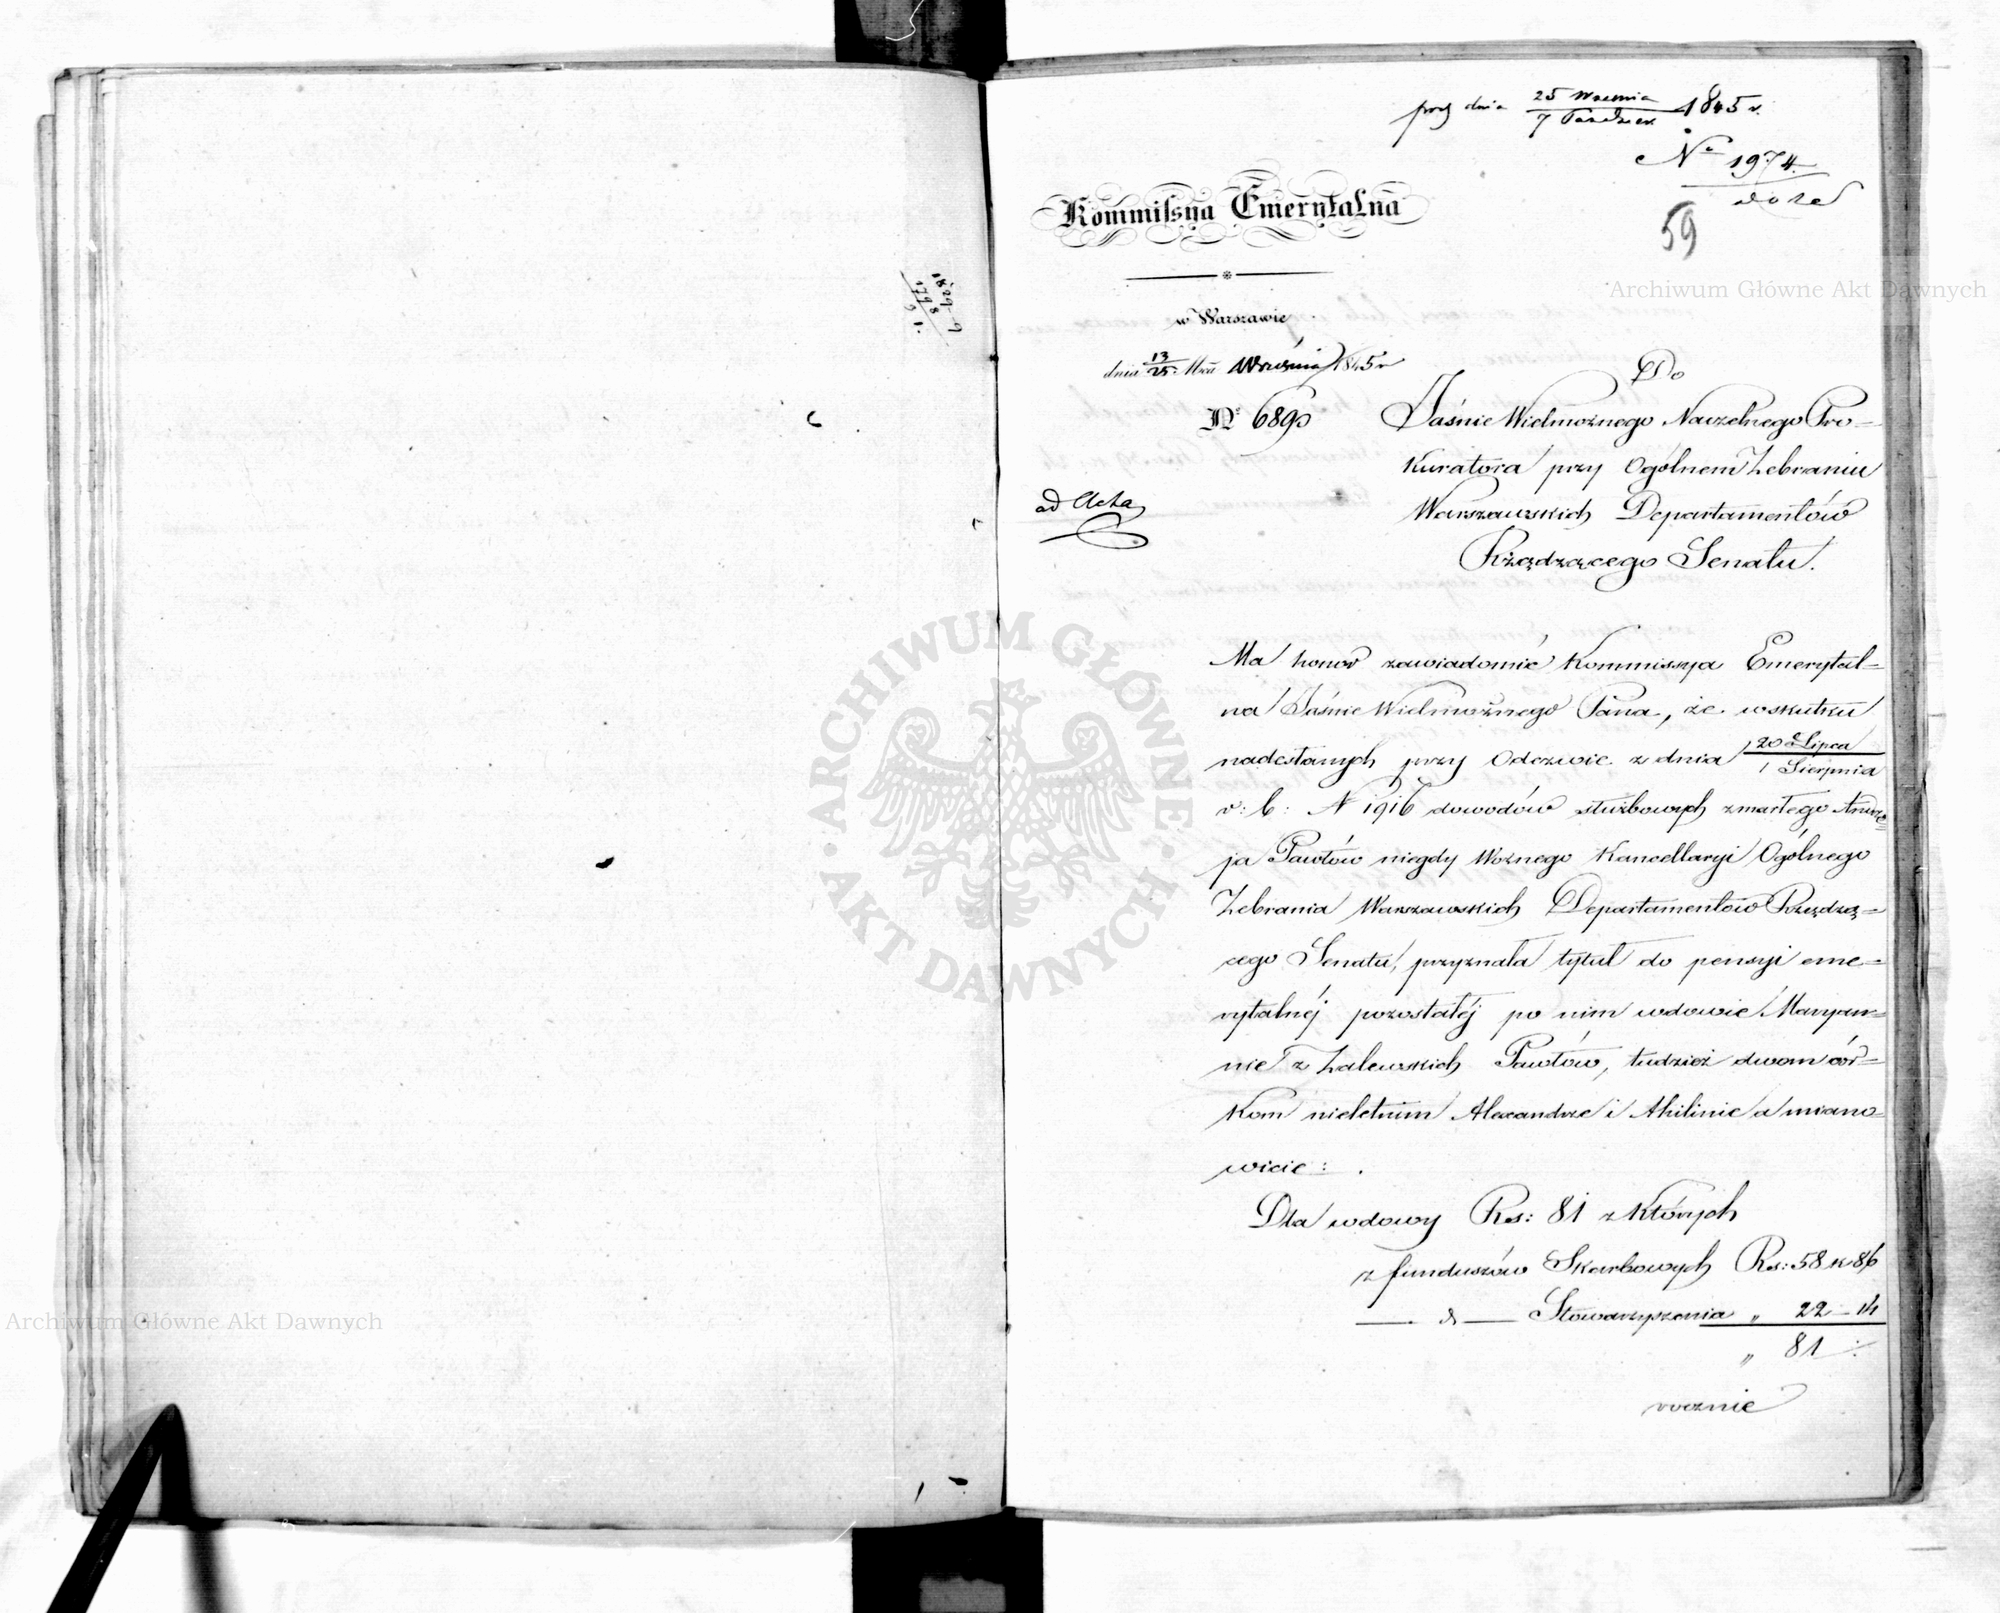 1829 9
1798
9 1.
prez dnia 25 Września 1845 r.
7 Paździer.
No 1974.
59
Kommissya Emerytalna
w Warszawie
dnia 13/25 Mca Września 1845 r
No 6890
ad Acta
Do
Jaśnie Wielmożnego Naczelnego Pro-
kuratora przy Ogólnem Zebraniu
Warszawskich Departamentów
Rządzącego Senatu.
Ma honor zawiadomić Kommissya Emerytal-
na Jaśnie Wielmożnego Pana, że wskutku
nadesłanych przy Odezwie z dnia 20 Lipca
1 Sierpnia
r: b: N 1916 dowodów służbowych zmarłego Andrze-
ja Pawłów niegdy Woznego Kancellaryi Ogólnego
Zebrania Warszawskich Departamentów Rządzą-
cego Senatu, przyznała tytuł do pensyi eme-
rytalnéj pozostałéj po nim wdowie Maryan-
nie z Zalewskich Pawłów, tudzież dwom cór-
kom nieletnim Alexandrze i Akilinie a miano-
wicie:
Dla wdowy Rs: 81 z których
z funduszów Skarbowych Rs: 58 k 86
— d — Stowarzyszenia „ 22 - 14
„ 81
rocznie
Archiwum Główne Akt Dawnych
ARCHIWUM GŁÓWNE AKT DAWNYCH
Archiwum Główne Akt Dawnych